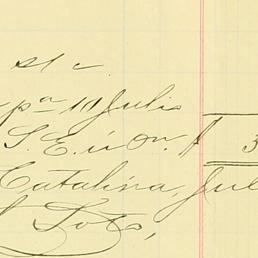 s/c
pa 10 Julio
S. E. ú On. $ 3
Catalina, Jul
Soto,